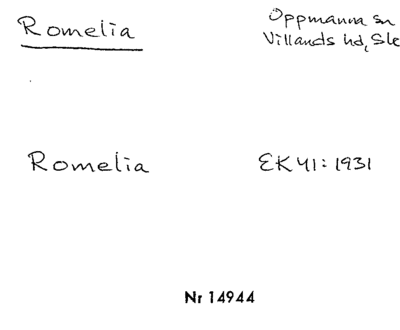 Romelia
Oppmanna sn
Villands hd, Sk
Romelia
EK 41: 1931
Nr 14944